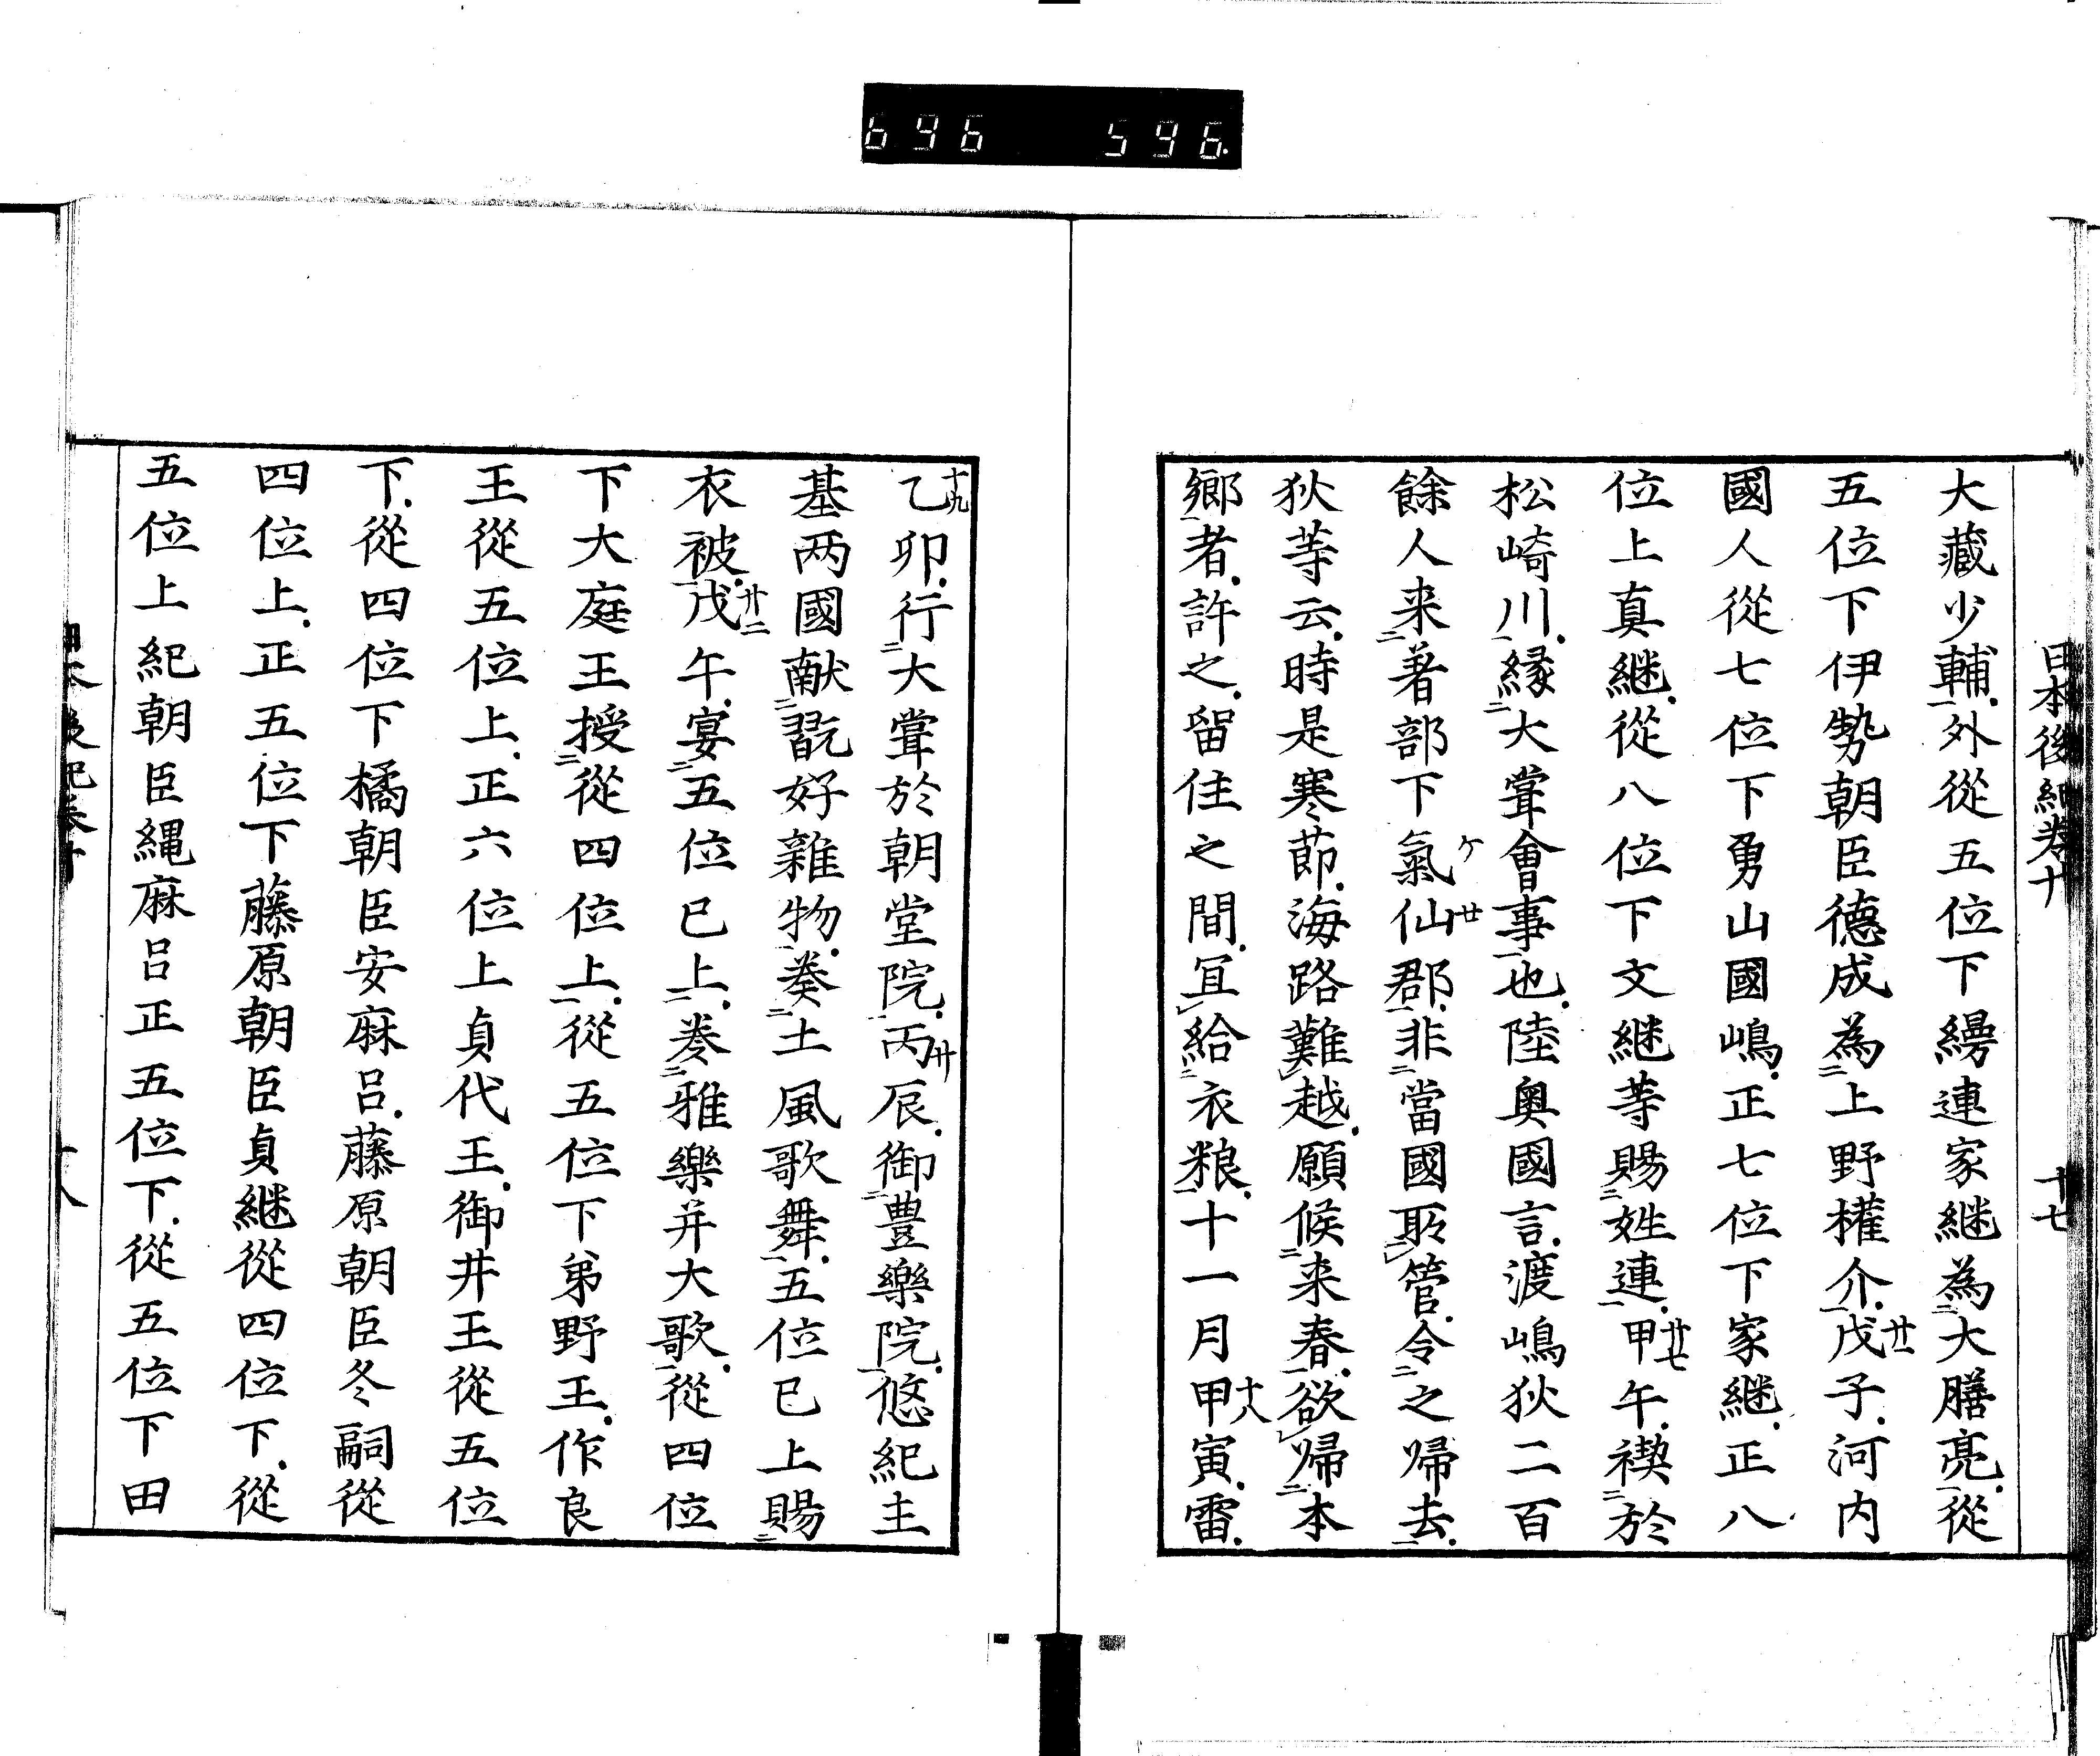 696 596
日本後紀卷十 十七
大藏少輔外從五位下縵連家継為大膳亮從
五位下伊勢朝臣德成為上野權介戊子河内
國人從七位下勇山國嶋正七位下家継正八
位上真継從八位下文継等賜姓連甲午禊於
松崎川縁大甞會事也陸奥國言渡嶋狄二百
餘人来著部下氣仙郡非當國所管令之帰去
狄等云時是寒節海路難越願候来春欲帰本
鄉者許之留住之間冝給衣粮十一月甲寅雷
乙卯行大甞於朝堂院丙辰御豊樂院悠紀主
基两國献翫好雜物奏土風歌舞五位已上賜
衣被戊午宴五位已上奏雅樂并大歌從四位
下大庭王授從四位上從五位下弟野王作良
王從五位上正六位上貞代王御井王從五位
下從四位下橘朝臣安麻呂藤原朝臣冬嗣從
四位上正五位下藤原朝臣貞継從四位下從
五位上紀朝臣縄麻呂正五位下從五位下田